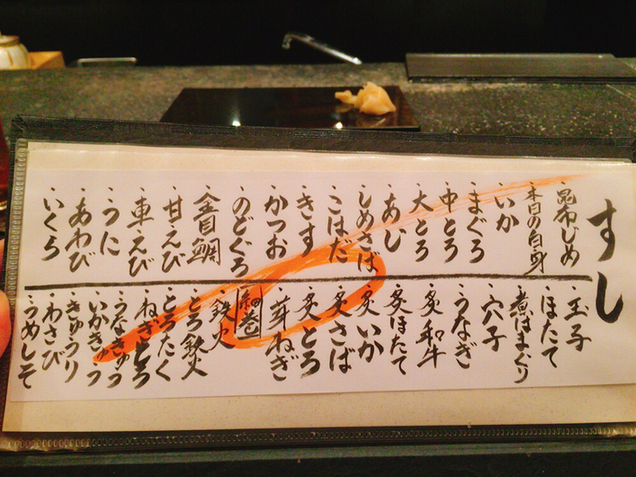 すし
昆布じめ
・本日の白身
・いか
・まぐろ
・中とろ
・大とろ
・あじ
・しめさば
・こはだ
・きす
・かつお
・のどぐろ
・金目鯛
・甘えび
・車えび
・うに
・あわび
・いくら
・玉子
・ほたて
・煮はまぐり
・穴子
・うなぎ
・炙和牛
・炙ほたて
・炙いか
・炙さば
・炙とろ
・芽ねぎ
細巻
・鉄火
・とろ鉄火
・とろたく
・ねぎとろ
・うなきゅう
・いかきゅう
・きゅうり
・わさび
・うめしそ